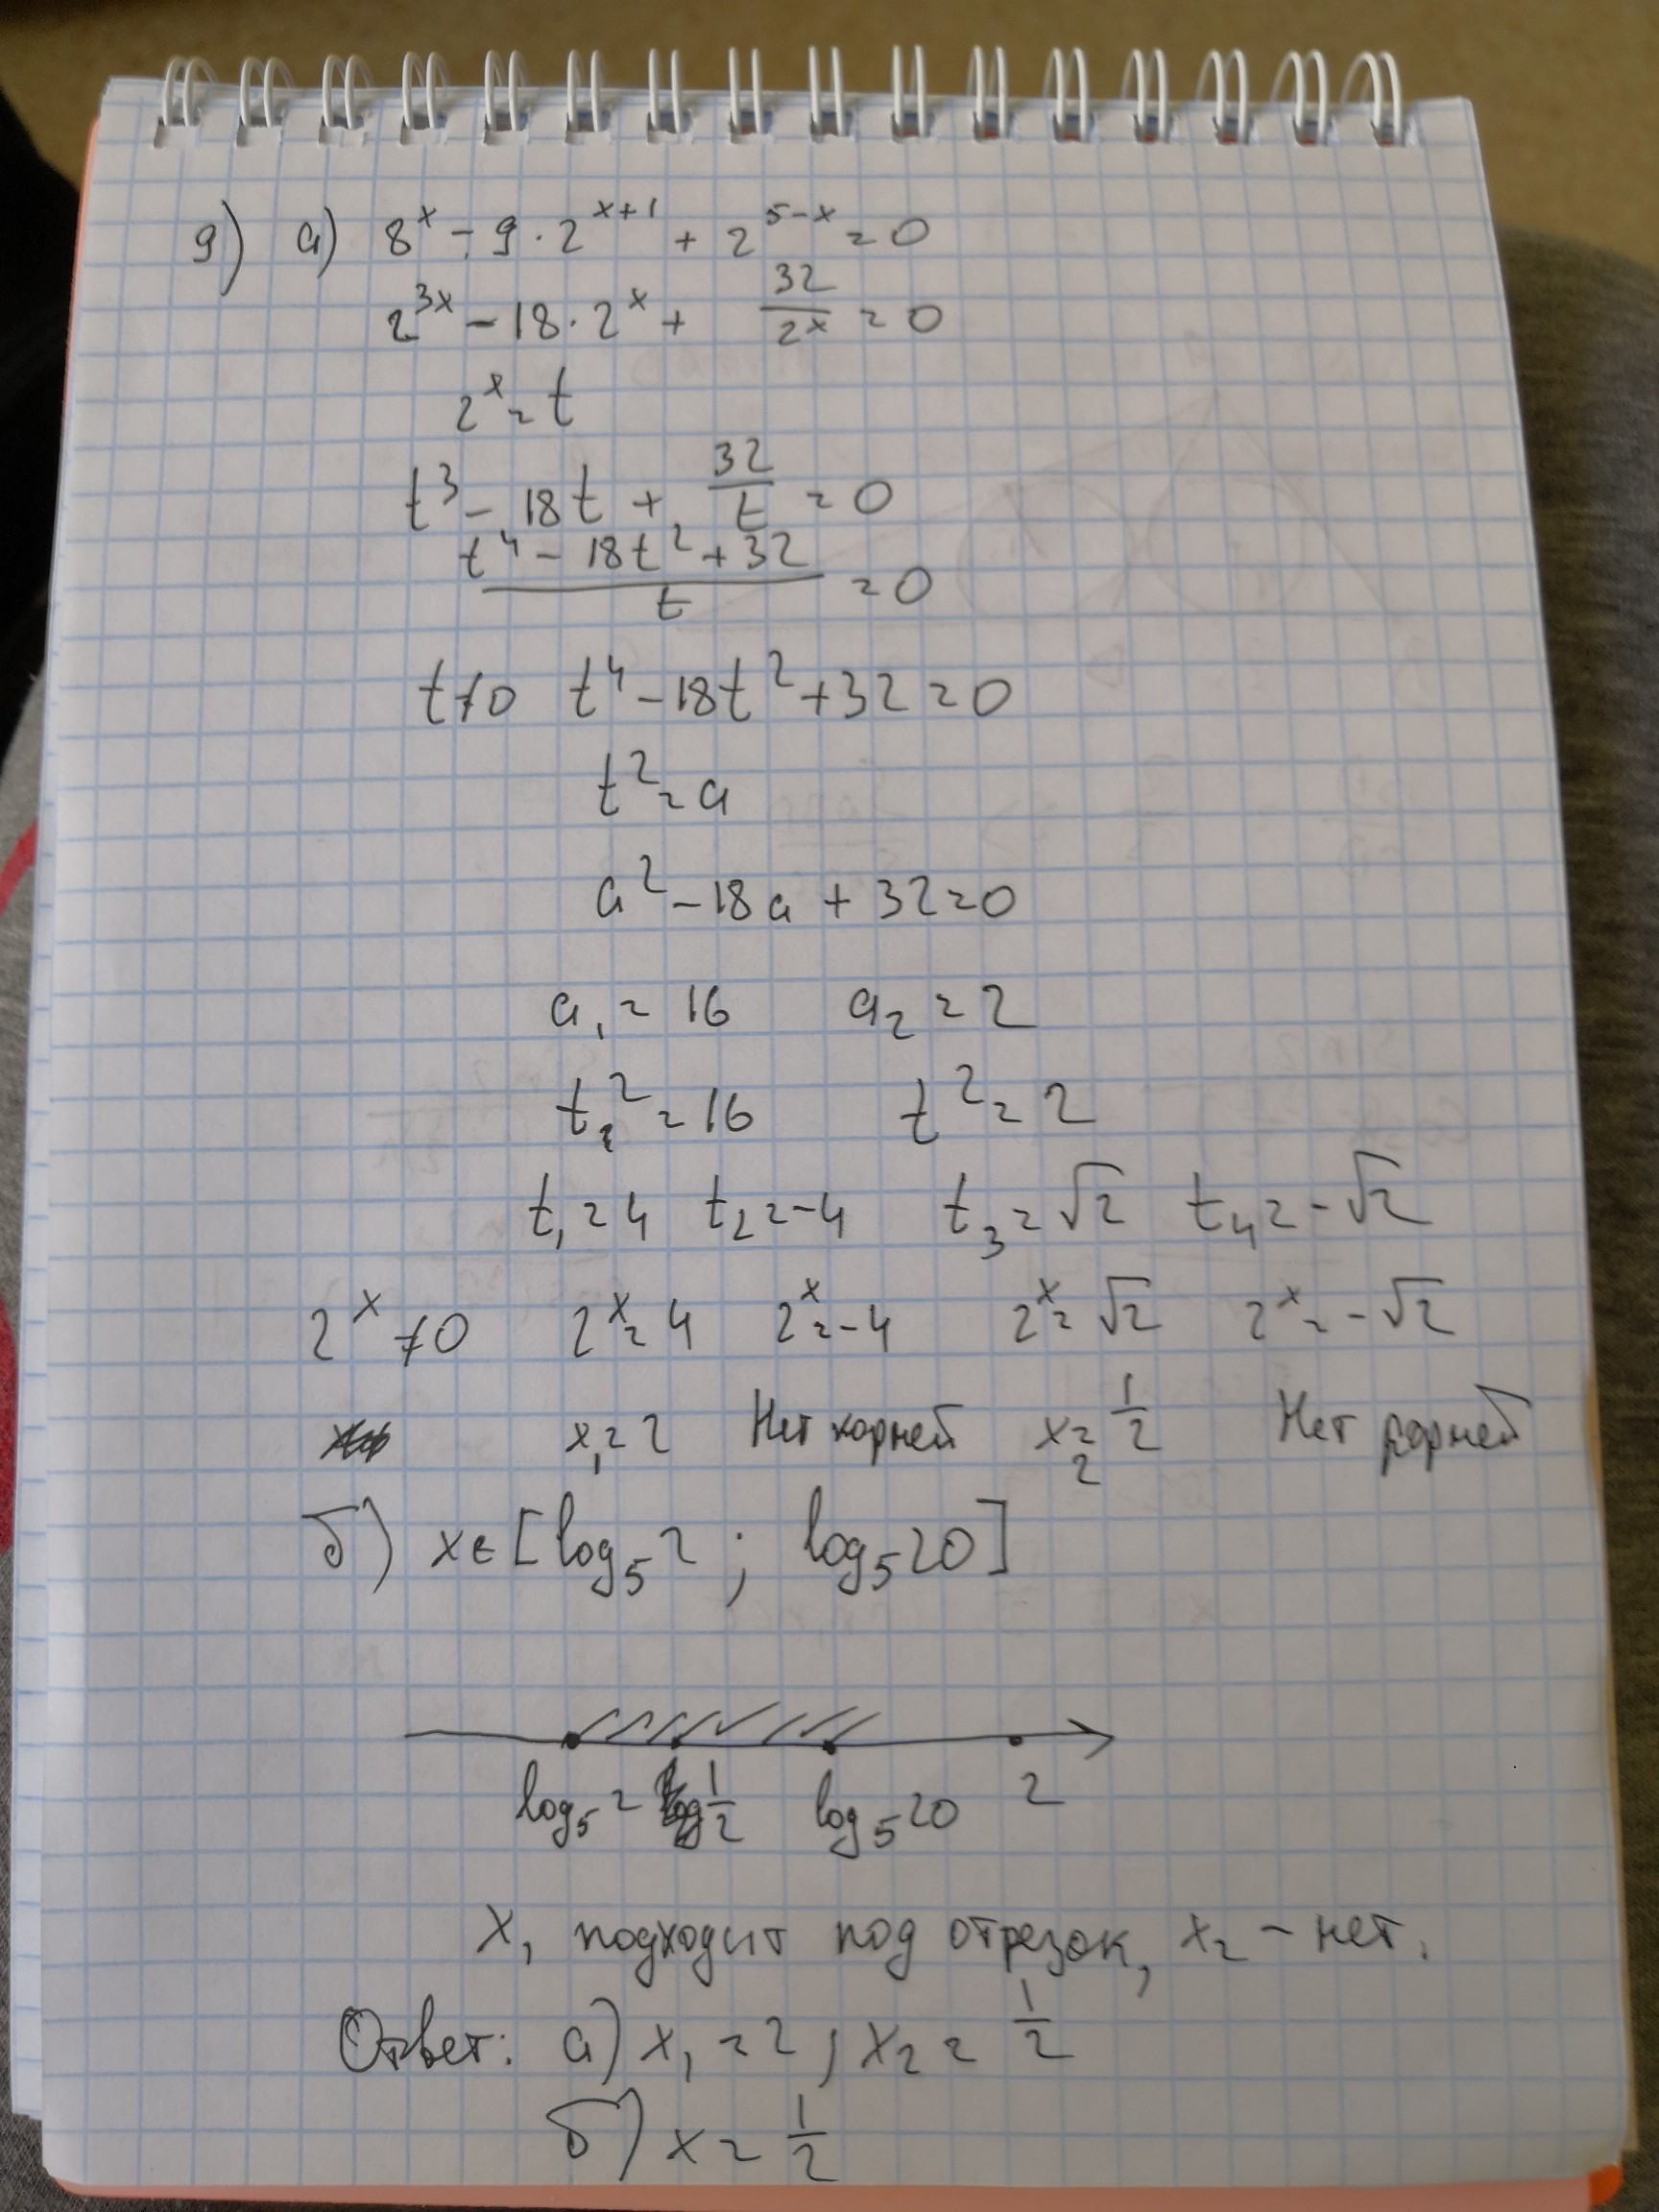 9) a) 8^x - 9 · 2^{x+1} + 2^{5-x} = 0
2^{3x} - 18 · 2^x + 32/2^x = 0
2^x = t
t^3 - 18t + 32/t = 0
(t^4 - 18t^2 + 32)/t = 0
t ≠ 0 t^4 - 18t^2 + 32 = 0
t^2 = a
a^2 - 18a + 32 = 0
a_1 = 16 a_2 = 2
t^2 = 16 t^2 = 2
t_1 = 4 t_2 = -4 t_3 = √2 t_4 = -√2
2^x ≠ 0 2^x = 4 2^x = -4 2^x = √2 2^x = -√2
x_1 = 2 Нет корней x_2 = 1/2 Нет корней
б) x ∈ [log_5 2 ; log_5 20]
log_5 2 1/2 log_5 20 2
x_1 подходит под отрезок, x_2 - нет.
Ответ: а) x_1 = 2 ; x_2 = 1/2
б) x = 1/2